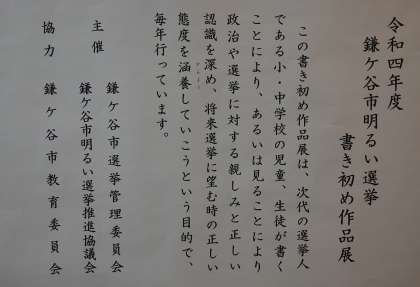 令和四年度
鎌ケ谷市明るい選挙
書き初め作品展
この書き初め作品展は、次代の選挙人
である小・中学校の児童、生徒が書く
ことにより、あるいは見ることにより
政治や選挙に対する親しみと正しい
認識を深め、将来選挙に望む時の正しい
態度を涵養していこうという目的で、
毎年行っています。
主催　鎌ケ谷市選挙管理委員会
鎌ケ谷市明るい選挙推進協議会
協力　鎌ケ谷市教育委員会